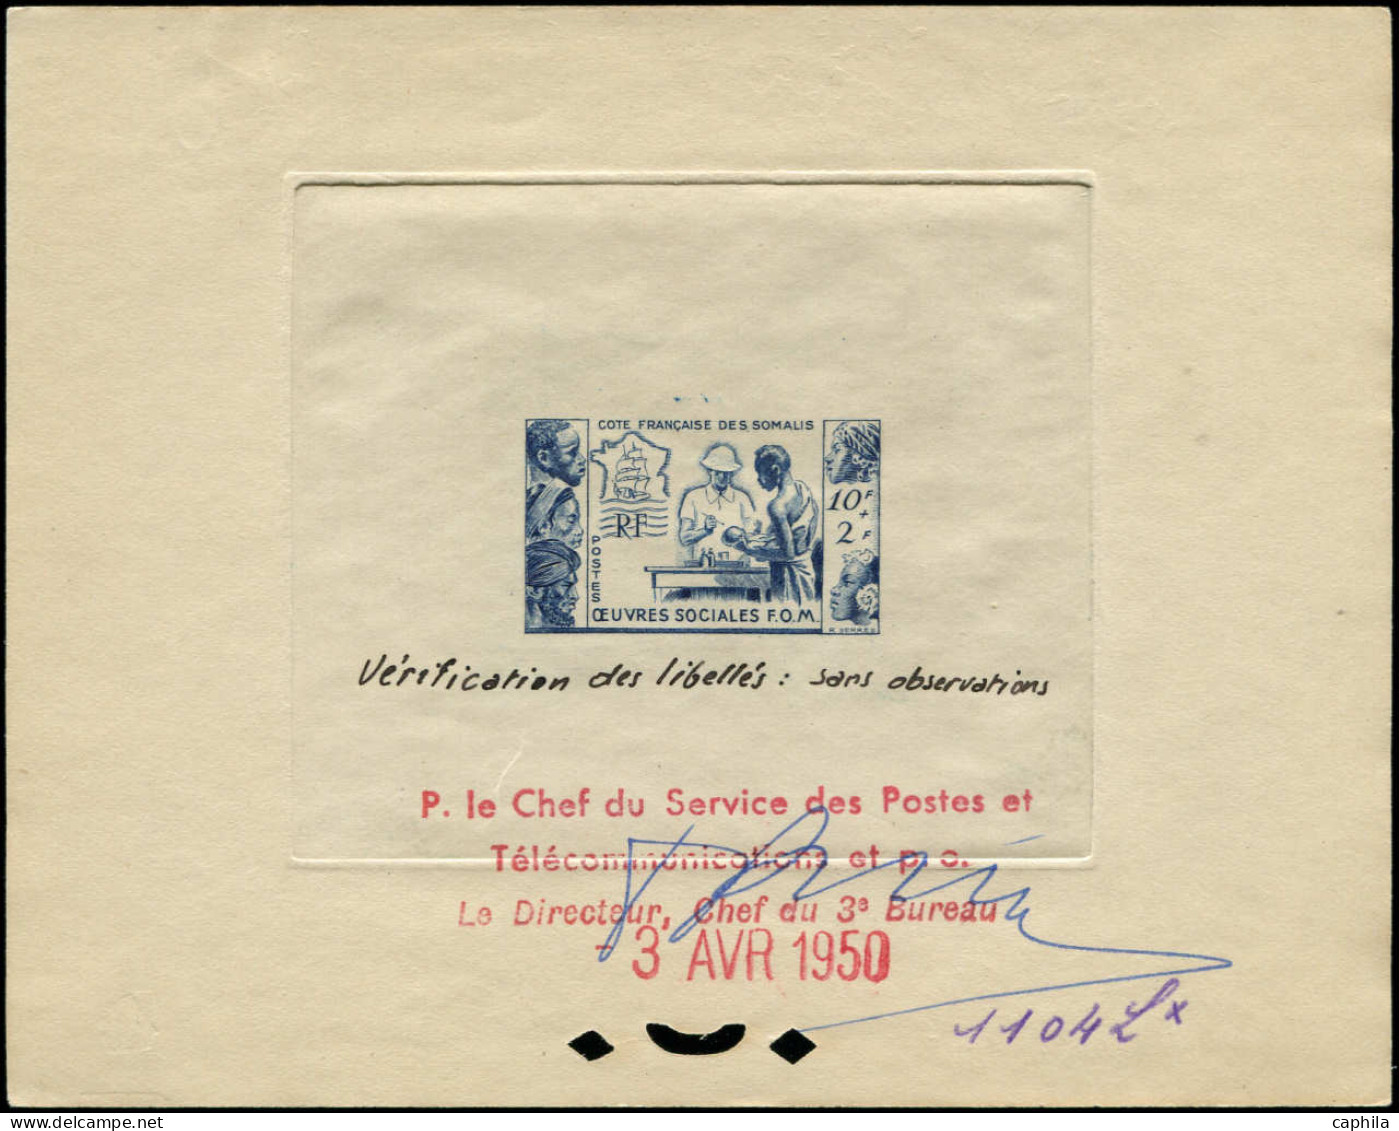 COTE FRANÇAISE DES SOMALIS
10F
+
2F
RF
POSTES
ŒUVRES SOCIALES F.O.M.
R. SERRES
Vérification des libellés : sans observations
P. le Chef du Service des Postes et
Télécommunications et p. o.
Le Directeur, Chef du 3e Bureau
- 3 AVR 1950
1104 Lx
caphila